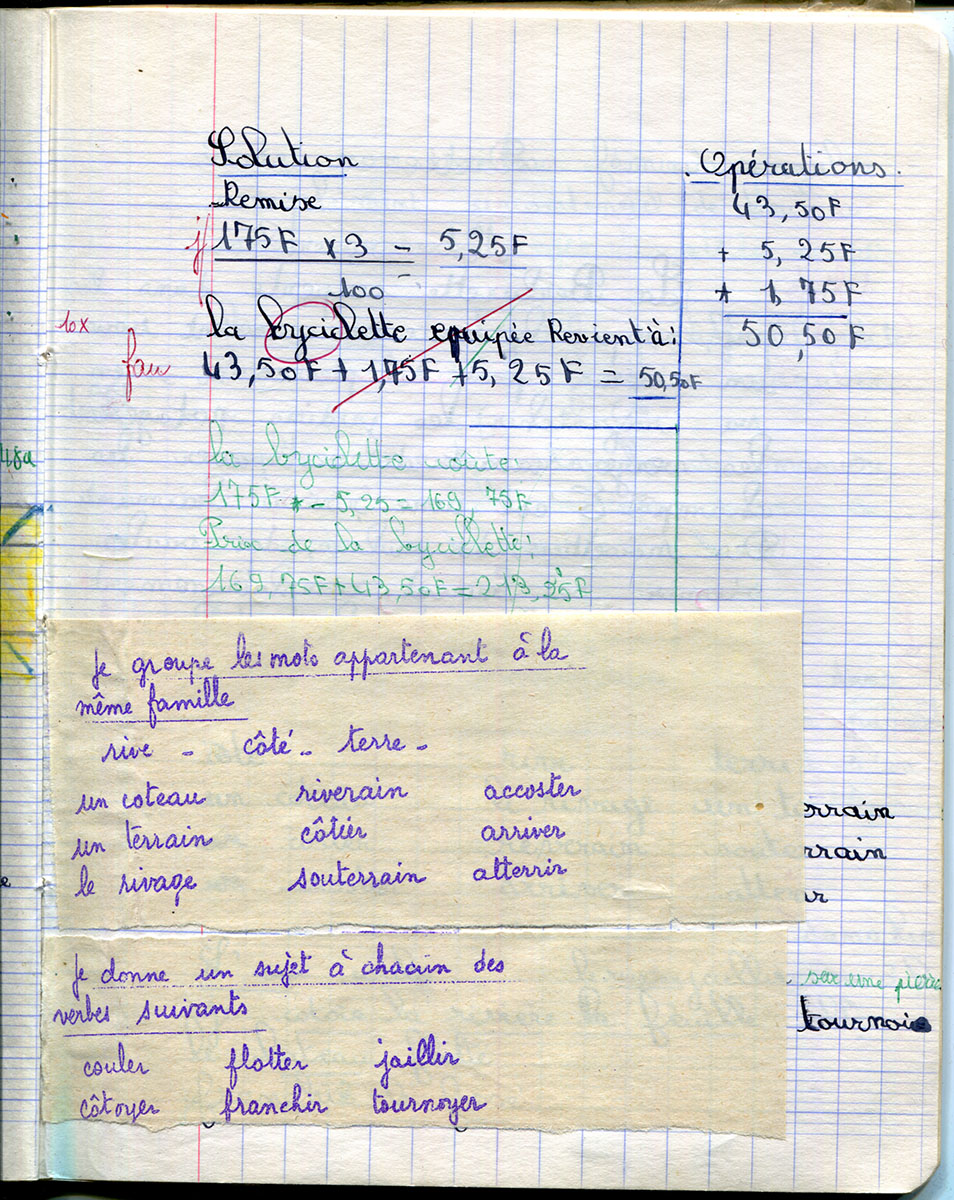 Solution
Remise
j 175F × 3 = 5,25F
100
la byciclette equipée Revient à:
43,50F + 1,75F + 5,25F = 50,50F
10x
faux
Opérations
43,50F
+ 5,25F
+ 1,75F
50,50F
la byciclette coûte:
175F - 5,25 = 169,75F
Prix de la byciclette:
169,75F + 43,50F = 213,25F
Je groupe les mots appartenant à la
même famille
rive - côté - terre -
un coteau riverain accoster
un terrain côtier arriver
le rivage souterrain atterrir
errain
rrain
ur
Je donne un sujet à chacun des
verbes suivants
couler flotter jaillir
côtoyer franchir tournoyer
sur une pierre
tournoie